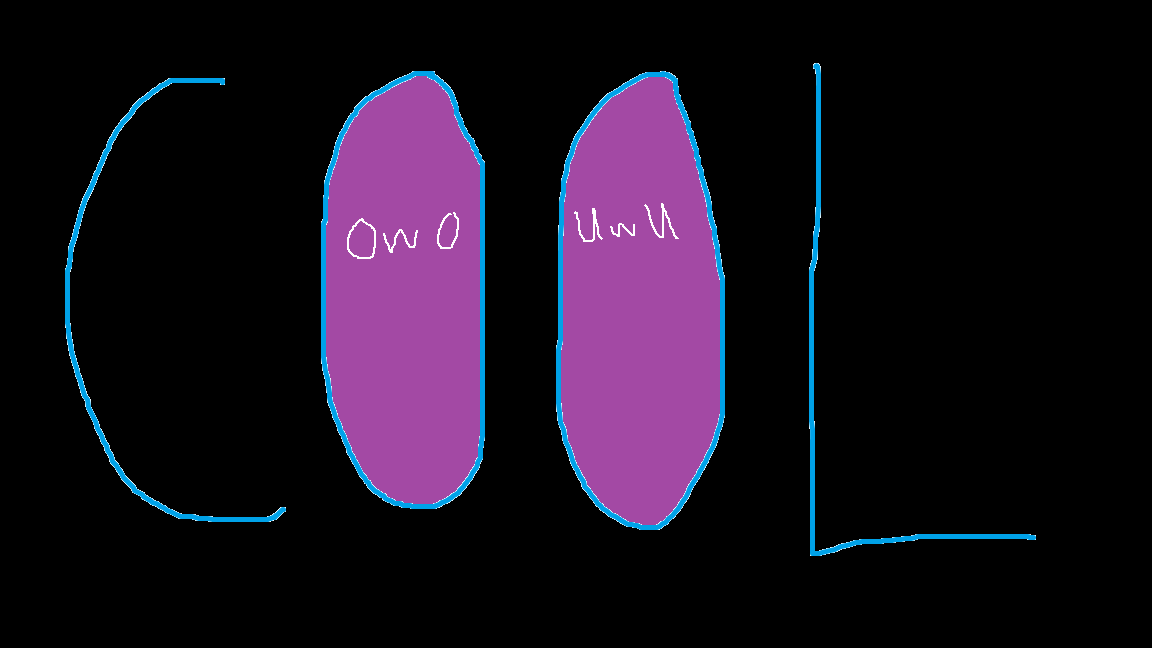 COOL
OwO UwU